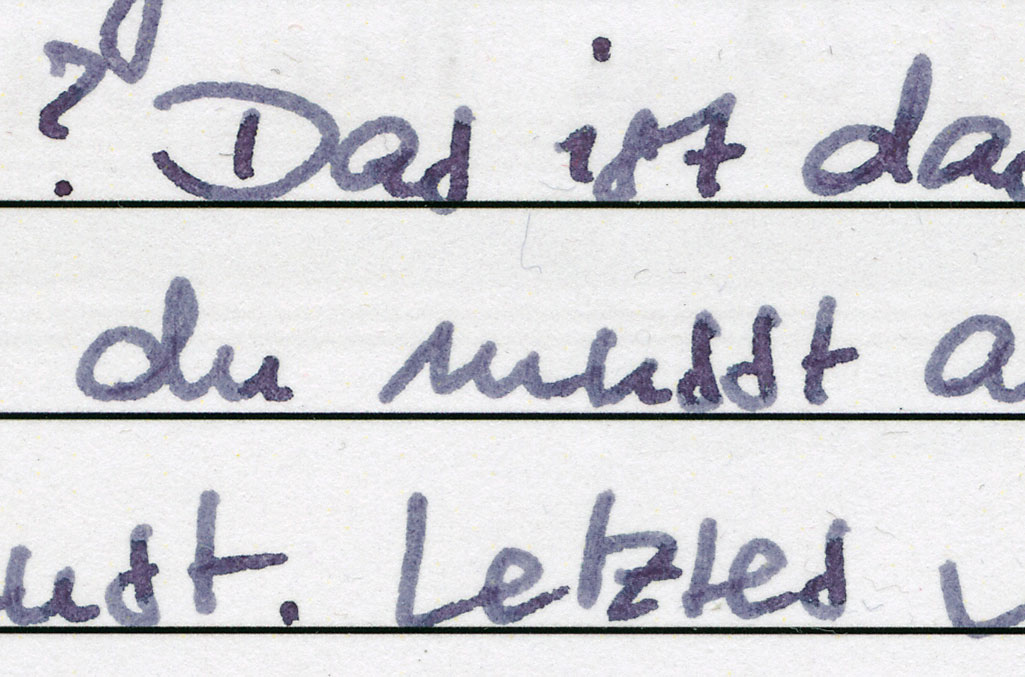 ? Das ist da
du musst a
ust. Letztes